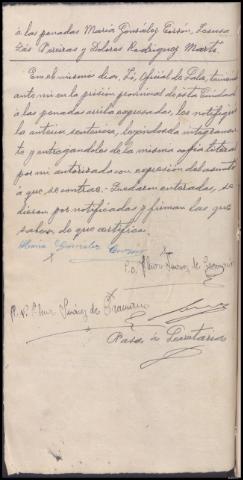 á las penadas María González Cerrón, Teresa
Lós Pereiras y Dolores Rodríguez Martí.
En el mismo dia, Yó, Oficial de Sala, teniendo
ante mi en la prisión provincial de esta Ciudad
á las penadas arriba expresadas, les notifiqué
la anterior sentencia, leyendosela integramente
y entregandoles de la misma copia literal
por mi autorizada con expresión del asunto
á que se contrae. Quedaron enteradas, se
dieron por notificadas y firman las que
saben de que certifico.
María González
P.O. Suárez de
P.O. Suárez de
Pasa á Secretaría